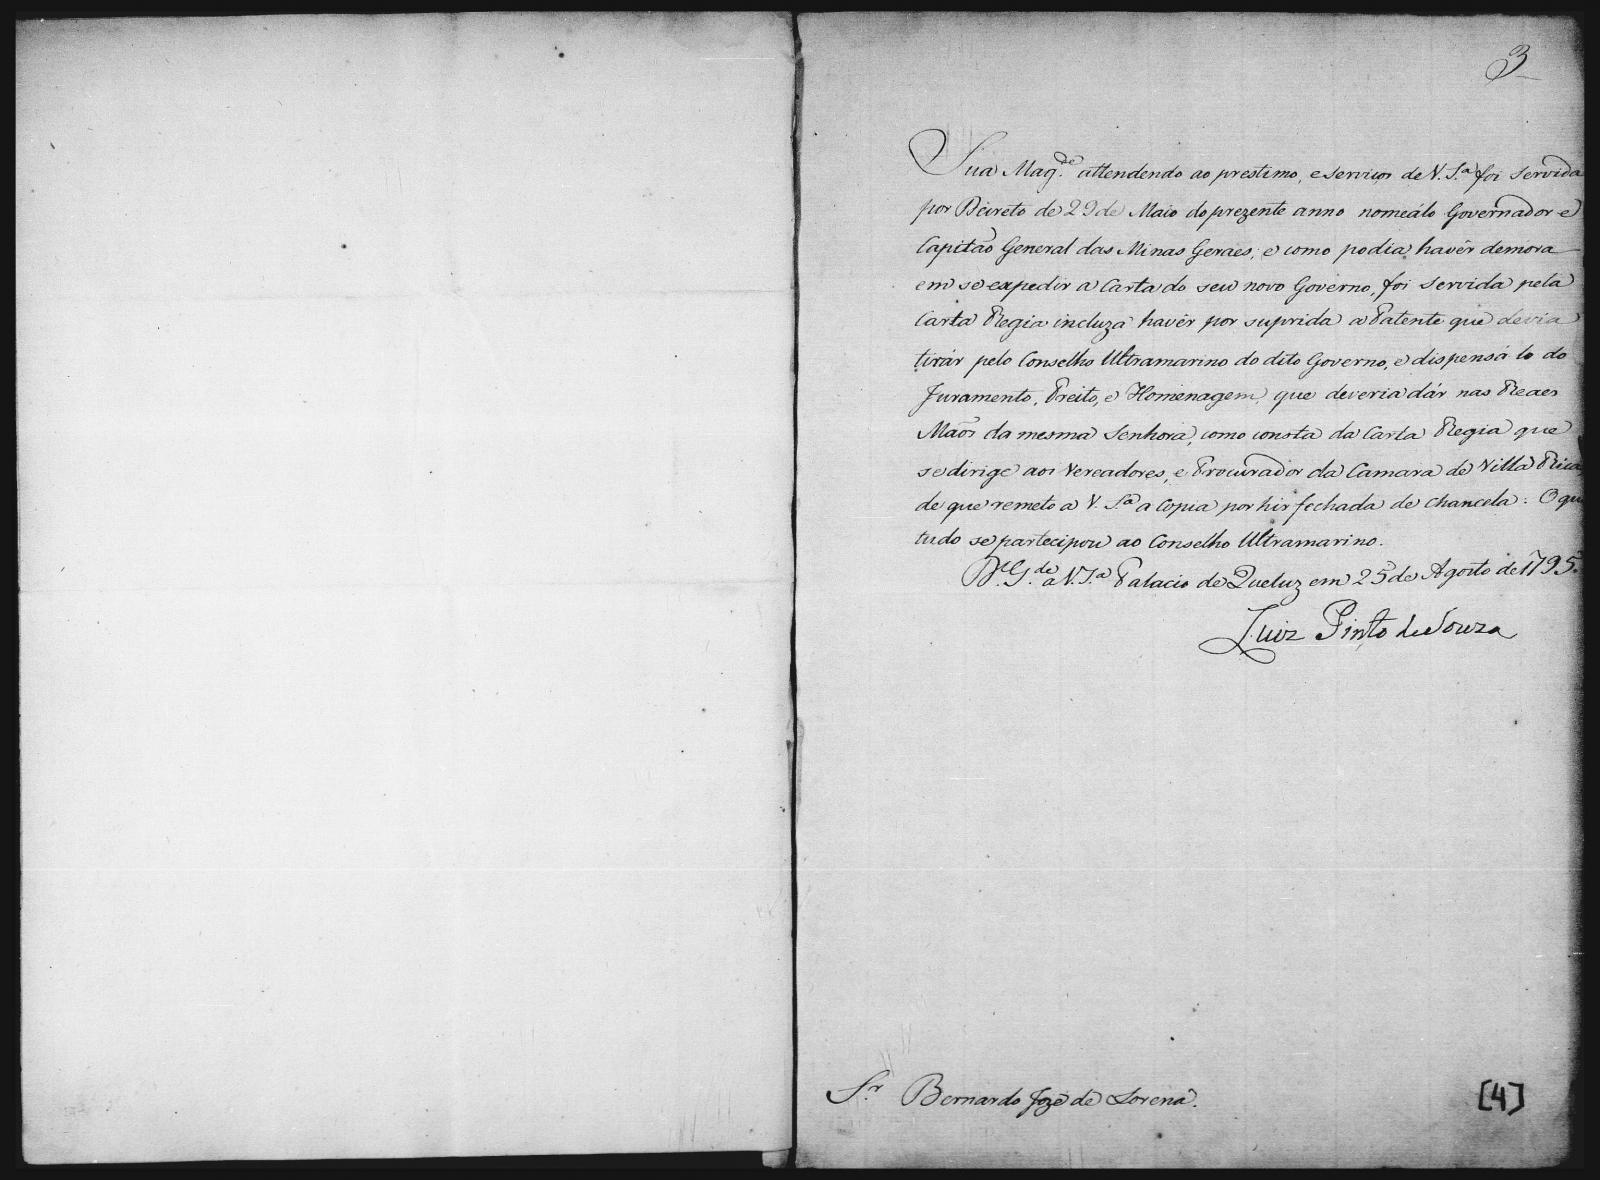 3
Sua Mag.de attendendo ao prestimo, e serviços de V. S.a foi servida
por Decreto de 29 de Maio do prezente anno nomeálo Governador e
Capitaõ General das Minas Geraes; e como podia havêr demora
em se expedir a Carta do seu novo Governo, foi servida pela
Carta Regia incluza havêr por suprida a Patente que devia
tirár pelo Conselho Ultramarino do dito Governo, e dispensá lo do
Juramento, Preito, e Homenagem, que deveria dár nas Reaes
Maõs da mesma Senhora, como consta da Carta Regia que
se dirige aos Vereadores, e Procurador da Camara de Villa Rica,
de que remeto a V. S.a a Copia por hir fechada de chancela: O que
tudo se partecipou ao Conselho Ultramarino.
D.s G.de a V. S.a Palacio de Queluz em 25 de Agosto de 1795.
Luiz Pinto de Souza
S.r Bernardo Jozé de Lorena.
[4]